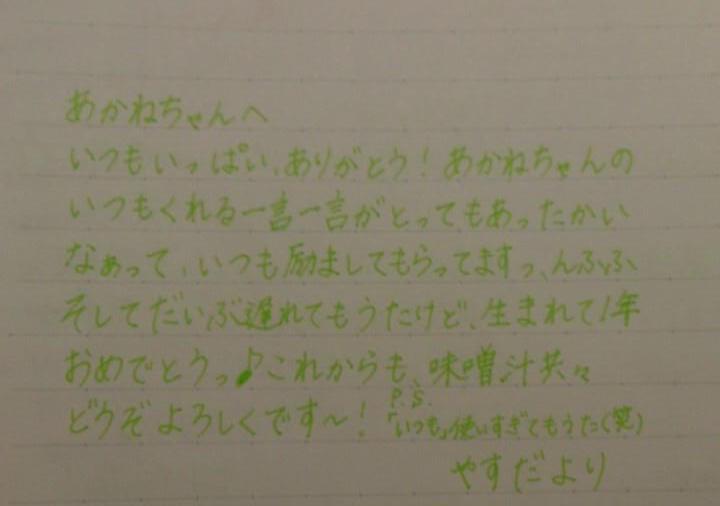 あかねちゃんへ
いつもいっぱい、ありがとう！あかねちゃんの
いつもくれる一言一言がとってもあったかい
なぁって、いつも励ましてもらってますっ、んふふ
そしてだいぶ遅れてもうたけど、生まれて1年
おめでとうっ♪これからも、味噌汁共々
どうぞよろしくです〜！
P.S.
「いつも」使いすぎてもうた(笑)
やすだより